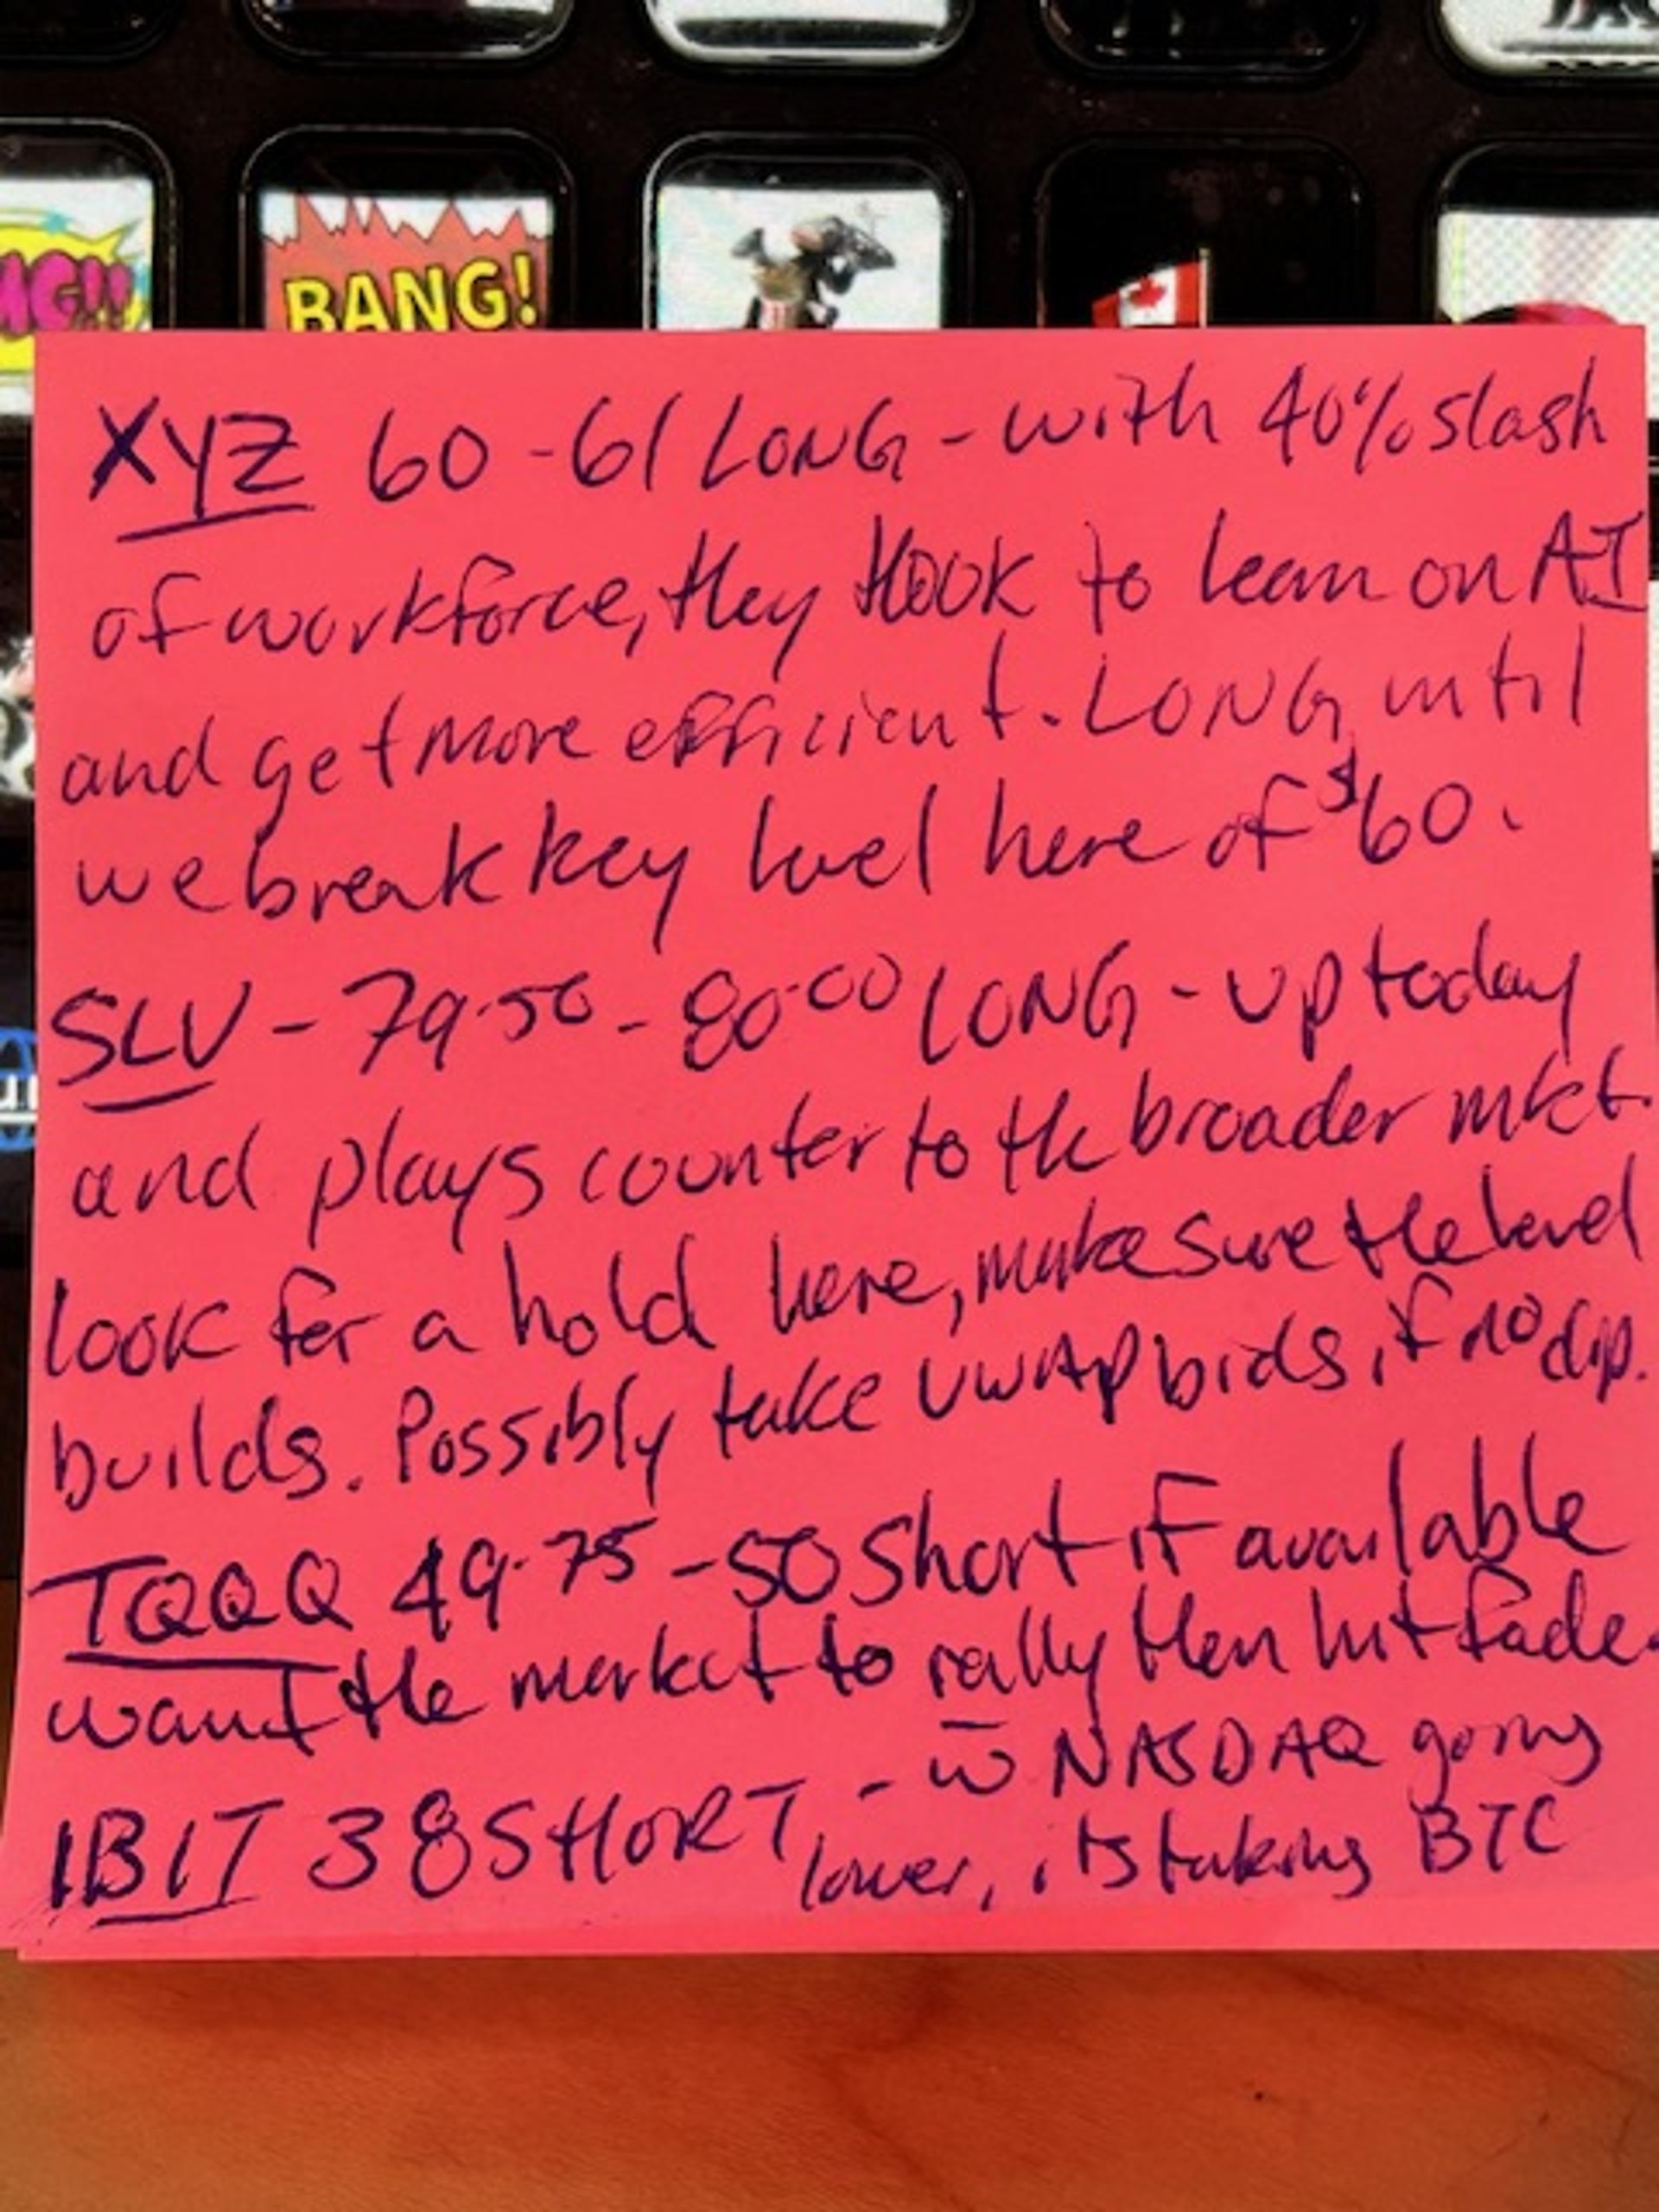 BANG!
XYZ 60-61 LONG - with 40% slash
of workforce, they look to lean on AI
and get more efficient. LONG until
we break key level here of $60.
SLV - 79.50 - 80.00 LONG - up today
and plays counter to the broader mkt.
look for a hold here, make sure the level
builds. Possibly take VWAP bids, if no dip.
TQQQ 49.75 - 50 Short if available
want the market to rally then hit fade.
IBIT 38 SHORT - w NASDAQ going
lower, its taking BTC